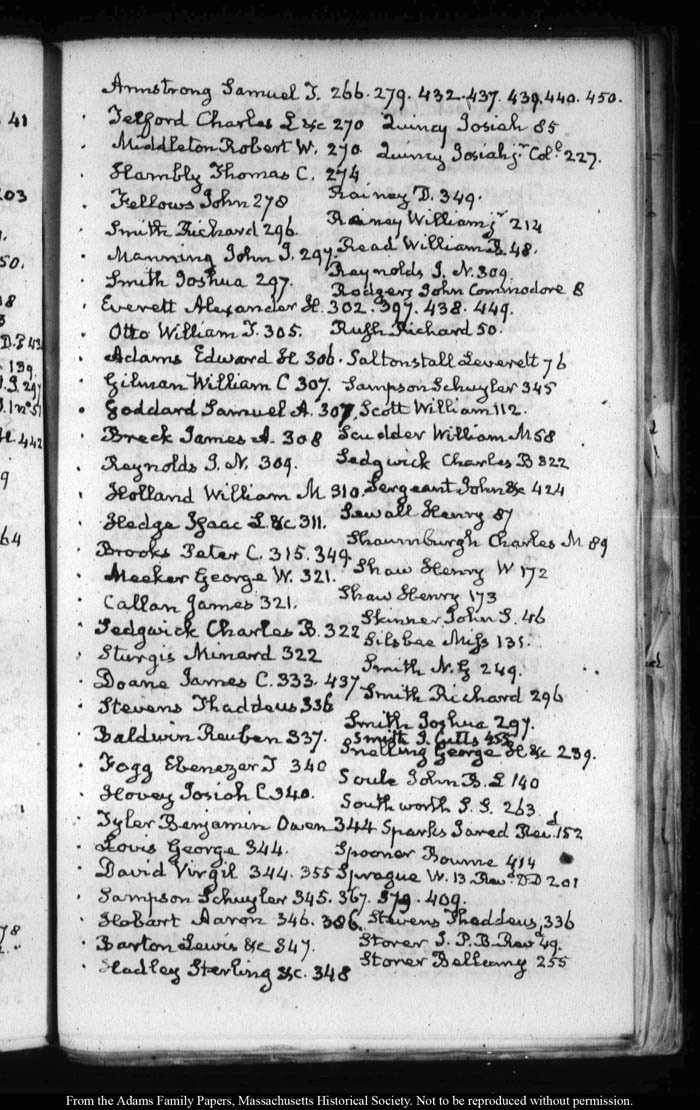 41
203
50.
18
3
D.P 43
139.
J.S 297
442
9
64
78
Armstrong Samuel T. 266. 279. 432. 437. 439. 440. 450.
Telford Charles L &c 270 Quincy Josiah 85
Middleton Robert W. 270. Quincy Josiah jr Colo 227.
Hambly Thomas C. 274
Fellows John 278 Rainey D. 349.
Smith Richard 296. Rainey William jr 214
Manning John J. 297. Read William B. 48.
Smith Joshua 297. Reynolds J. N. 309
Rodgers John Commodore 8
Everett Alexander H. 302. 397. 438. 449.
Otto William T. 305. Rush Richard 50.
Adams Edward H 306. Saltonstall Leverett 76
Gilman William C 307. Sampson Schuyler 345
Goddard Samuel A. 307. Scott William 112.
Breck James A. 308 Scudder William M 58
Reynolds J. N. 309. Sedgwick Charles B 322
Holland William M 310. Sergeant John &c 424
Hedge Isaac L. &c. 311. Sewall Henry 87
Brooks Peter C. 315. 349. Shaumburgh Charles M 89
Meeker George W. 321. Shaw Henry W 172
Callan James 321. Shaw Henry 173
Sedgwick Charles B. 322 Skinner John S. 46
Sturgis Minard 322 Silsbee Miss 131.
Doane James C. 333. 437 Smith N. G 249.
Stevens Thaddeus 336 Smith Richard 296
Baldwin Reuben 337. Smith Joshua 297.
Smith J. Cutts 455
Snelling George H &c 239.
Fogg Ebenezer T 340 Soule John B. L 140
Hovey Josiah C 340. Southworth S. S. 263
Tyler Benjamin Owen 344 Sparks Jared Revd. 152
Lovis George 344. Spooner Bourne 414
David Virgil 344. 355 Sprague W. B. Revd. DD 201
Sampson Schuyler 345. 367. 379. 409.
Hobart Aaron 346. 386. Stevens Thaddeus 336
Barton Lewis &c 347. Storer J. P. B. Revd 49.
Hadley Sterling &c. 348 Storer Bellamy 255
From the Adams Family Papers, Massachusetts Historical Society. Not to be reproduced without permission.